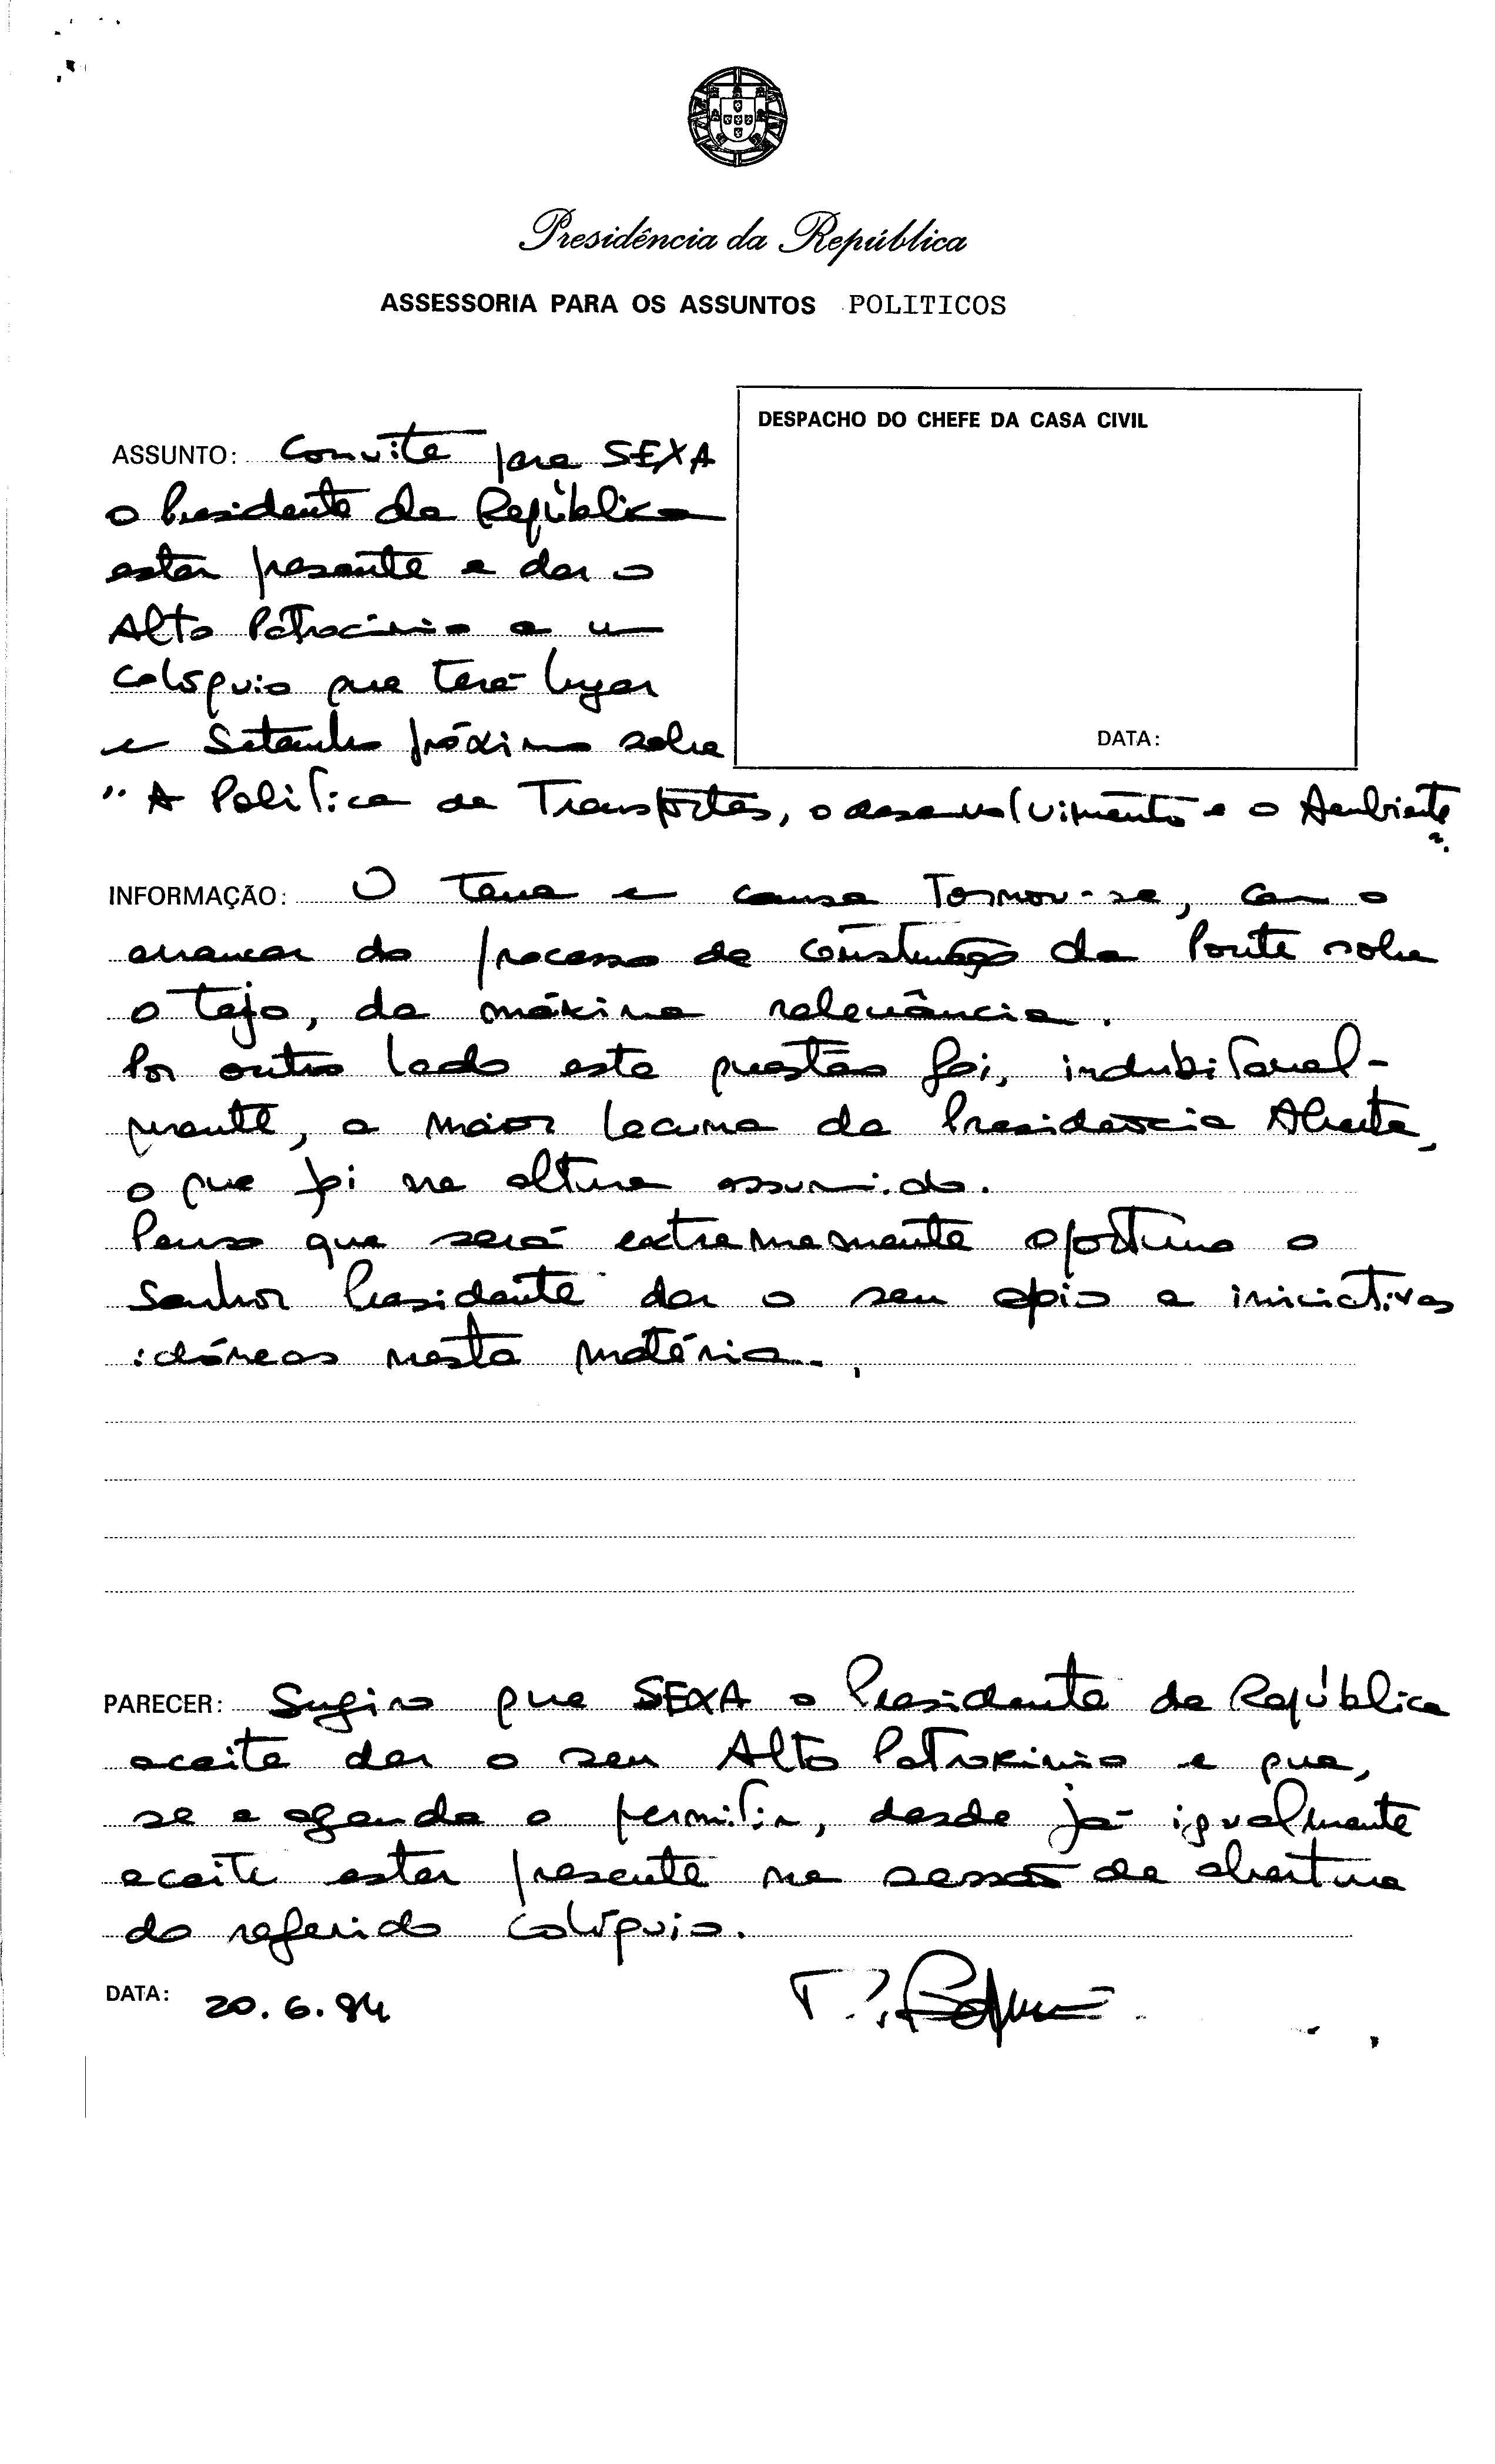 Presidência da República
ASSESSORIA PARA OS ASSUNTOS POLITICOS
DESPACHO DO CHEFE DA CASA CIVIL
DATA:
ASSUNTO: Convite para SEXA
o Presidente da República
estar presente e dar o
Alto Patrocínio a um
colóquio que terá lugar
em Setembro próximo sobre
"A Política de Transportes, o desenvolvimento e o Ambiente
".
INFORMAÇÃO: O tema em causa tornou-se, com o
arrancar do processo de construção da Ponte sobre
o Tejo, da máxima relevância.
Por outro lado esta questão foi, indubitavel-
mente, a maior lacuna da Presidência Aberta,
o que foi na altura assumido.
Penso que será extremamente oportuno o
Senhor Presidente dar o seu apoio a iniciativas
idóneas nesta matéria.
PARECER: Sugiro que SEXA o Presidente da República
aceite dar o seu Alto Patrocínio e que,
se a agenda o permitir, desde já igualmente
aceite estar presente na sessão de abertura
do referido colóquio.
DATA: 20.6.94